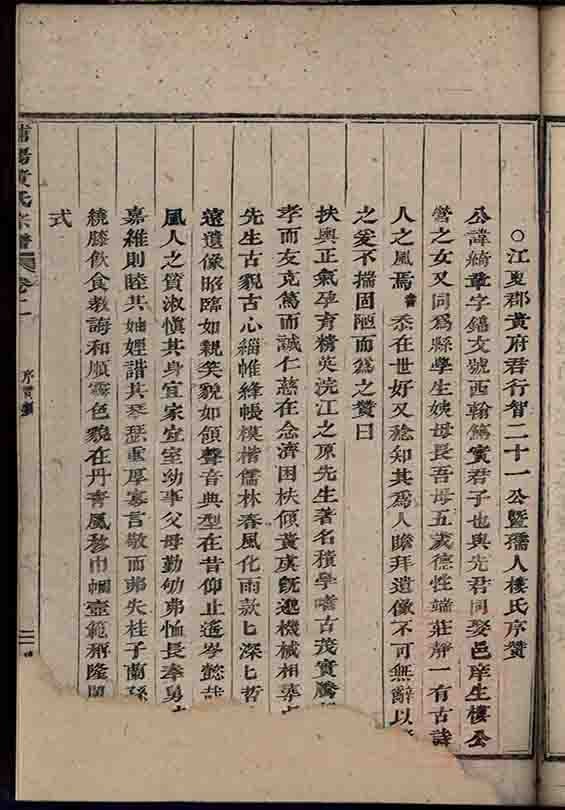 ○江夏郡黃府君行智二十一公暨孺人樓氏序贊
公諱綺章字錦文號西翰篤實君子也與先君同娶邑庠生樓公
營之女又同為縣學生姨母長吾母五歲德性端莊靜一有古詩
人之風焉 忝在世好又稔知其為人瞻拜遺像不可無辭以
之爰不揣固陋而為之贊曰
扶輿正氣孕育精英浣江之原先生著名積學嗜古茂實騰
孝而友克篤而誠仁慈在念濟困扶傾黃虞旣邈機械相
先生古貌古心緇帷絳帳模楷儒林春風化雨款匕深匕哲
遠遺像昭臨如親笑貌如領聲音典型在昔仰止遙岑懿哉
風人之質淑慎其身宜家宜室幼事父母勤劬弗恤長奉舅
嘉維則睦其妯娌諧其琴瑟重厚寡言敬而弗失桂子蘭孫
繞膝飲食教誨和順霽色貌在丹青風移巾幗壼範彌隆閨
式
黃氏宗譜 卷二 序贊